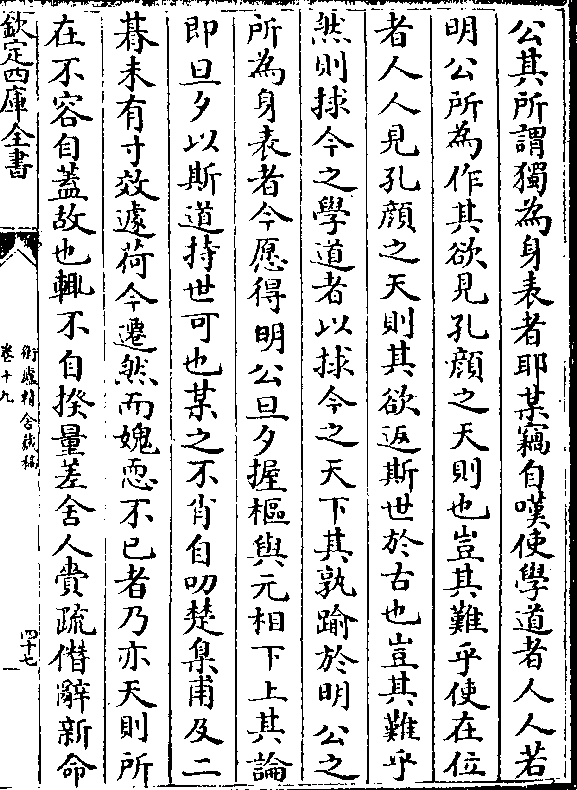 公其所謂獨為身表者耶某竊自嘆使學道者人人若
明公所為作其欲見孔顔之天則也豈其難乎使在位
者人人見孔顔之天則其欲返斯世於古也豈其難乎
然則捄今之學道者以捄今之天下其孰踰於明公之
所為身表者今愿得明公旦夕握樞與元相下上其論
即旦夕以斯道持世可也某之不肖自叨楚臬甫及二
朞未有寸效遽荷今遷然而媿恧不已者乃亦天則所
在不容自蓋故也輒不自揆量差舍人賫疏僭辭新命
欽定四庫全書
衡廬精舍藏稿
卷十九
四十七